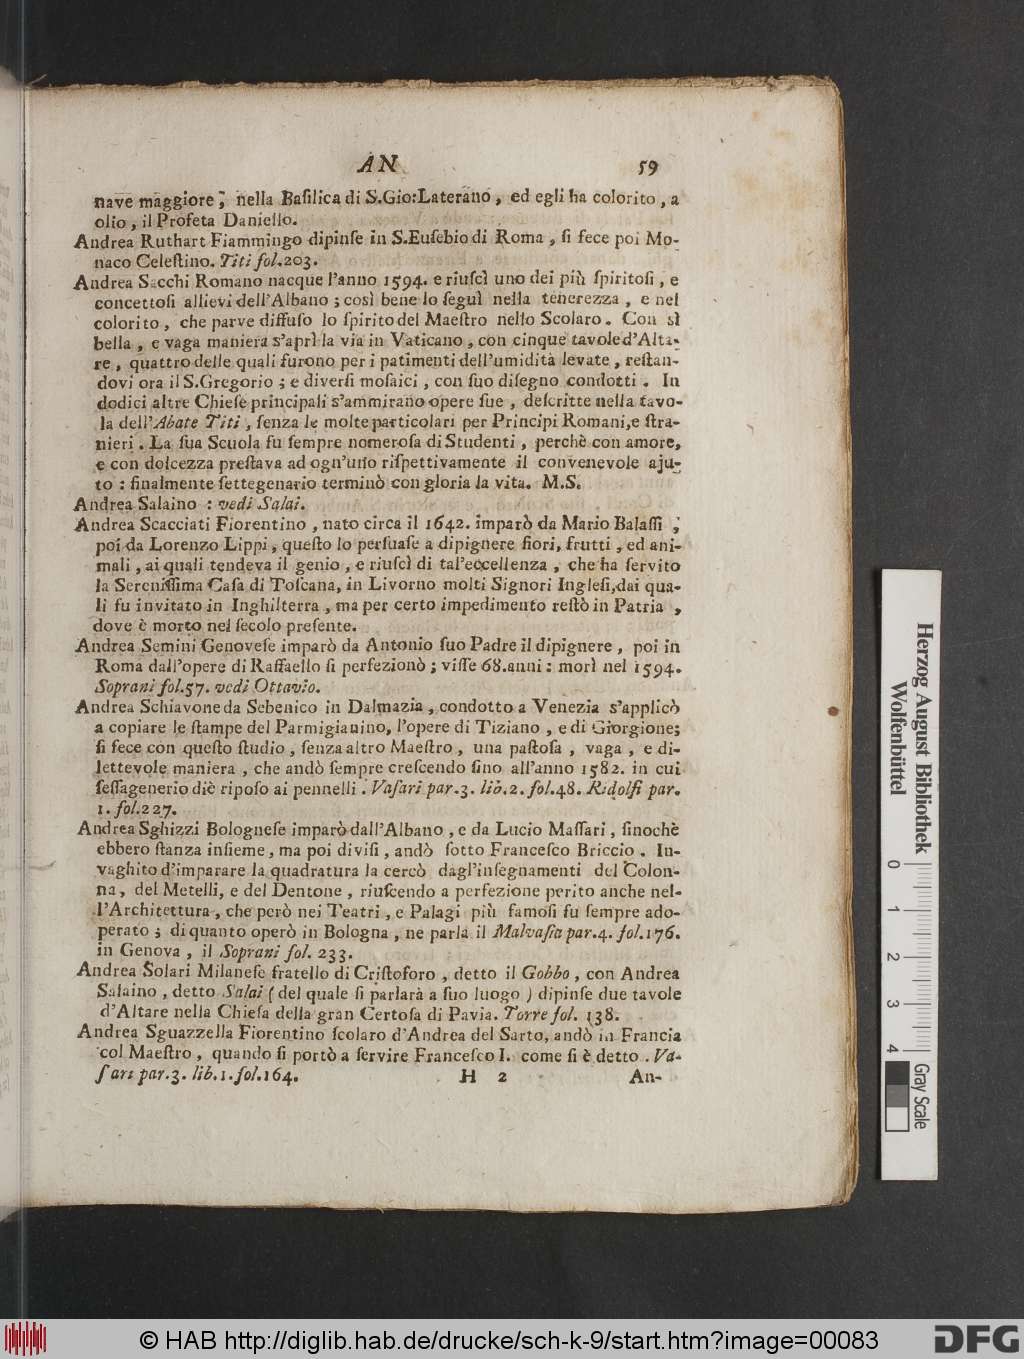 AN 59
nave maggiore, nella Baſilica di S.Gio:Laterano, ed egli ha colorito, a
olio, il Profeta Daniello.
Andrea Ruthart Fiammingo dipinſe in S.Euſebio di Roma, ſi fece poi Mo-
naco Celeſtino. Titi fol.203.
Andrea Sacchi Romano nacque l'anno 1594. e riuſcì uno dei più ſpiritoſi, e
concettoſi allievi dell'Albano; così bene lo ſeguì nella tenerezza, e nel
colorito, che parve diffuſo lo ſpirito del Maeſtro nello Scolaro. Con sì
bella, e vaga maniera s'aprì la via in Vaticano, con cinque tavole d'Alta-
re, quattro delle quali furono per i patimenti dell'umidità levate, reſtan-
dovi ora il S.Gregorio; e diverſi moſaici, con ſuo diſegno condotti. In
dodici altre Chieſe principali s'ammirano opere ſue, deſcritte nella tavo-
la dell'Abate Titi, ſenza le molte particolari per Principi Romani, e ſtra-
nieri. La ſua Scuola fu ſempre numeroſa di Studenti, perchè con amore,
e con dolcezza preſtava ad ogn'uno riſpettivamente il convenevole aju-
to: finalmente ſettegenario terminò con gloria la vita. M.S.
Andrea Salaino: vedi Salai.
Andrea Scacciati Fiorentino, nato circa il 1642. imparò da Mario Balaſſi,
poi da Lorenzo Lippi, queſto lo perſuaſe a dipignere fiori, frutti, ed ani-
mali, ai quali tendeva il genio, e riuſcì di tal'eccellenza, che ha ſervito
la Sereniſſima Caſa di Toſcana, in Livorno molti Signori Ingleſi, dai qua-
li fu invitato in Inghilterra, ma per certo impedimento reſtò in Patria,
dove è morto nel ſecolo preſente.
Andrea Semini Genoveſe imparò da Antonio ſuo Padre il dipignere, poi in
Roma dall'opere di Raffaello ſi perfezionò; viſſe 68.anni: morì nel 1594.
Soprani fol.57. vedi Ottavio.
Andrea Schiavone da Sebenico in Dalmazia, condotto a Venezia s'applicò
a copiare le ſtampe del Parmigianino, l'opere di Tiziano, e di Giorgione;
ſi fece con queſto ſtudio, ſenza altro Maeſtro, una paſtoſa, vaga, e di-
lettevole maniera, che andò ſempre creſcendo ſino all'anno 1582. in cui
ſeſſagenerio diè ripoſo ai pennelli. Vaſari par.3. lib.2. fol.48. Ridolfi par.
1. fol.227.
Andrea Sghizzi Bologneſe imparò dall'Albano, e da Lucio Maſſari, ſinochè
ebbero ſtanza inſieme, ma poi diviſi, andò ſotto Franceſco Briccio. In-
vaghito d'imparare la quadratura la cercò dagl'inſegnamenti del Colon-
na, del Metelli, e del Dentone, riuſcendo a perfezione perito anche nel-
l'Architettura, che però nei Teatri, e Palagi più famoſi fu ſempre ado-
perato; di quanto operò in Bologna, ne parla il Malvaſia par.4. fol.176.
in Genova, il Soprani fol. 233.
Andrea Solari Milaneſe fratello di Criſtoforo, detto il Gobbo, con Andrea
Salaino, detto Salai (del quale ſi parlarà a ſuo luogo) dipinſe due tavole
d'Altare nella Chieſa della gran Certoſa di Pavia. Torre fol. 138.
Andrea Sguazzella Fiorentino ſcolaro d'Andrea del Sarto, andò in Francia
col Maeſtro, quando ſi portò a ſervire Franceſco I. come ſi è detto. Va-
ſari par.3. lib.1. fol.164.
H 2 An-
Herzog August Bibliothek
Wolfenbüttel
0 1 2 3 4
Gray Scale
© HAB http://diglib.hab.de/drucke/sch-k-9/start.htm?image=00083
DFG